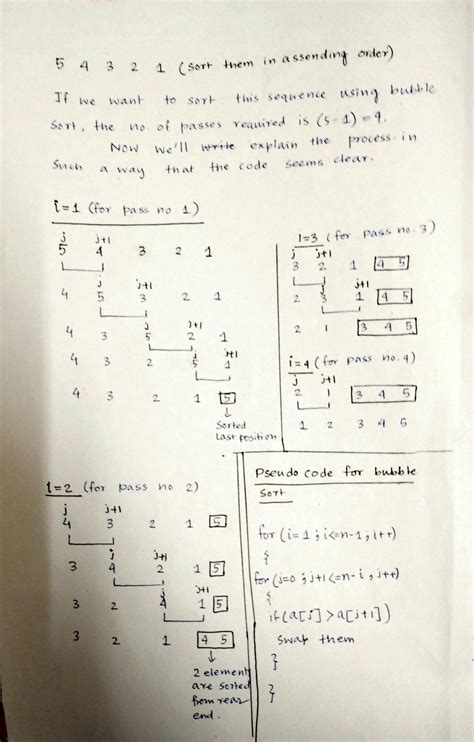 5 4 3 2 1 (sort them in assending order)
If we want to sort this sequence using bubble
sort, the no. of passes required is (5-1) = 4.
Now we'll write explain the process in
such a way that the code seems clear.
i=1 (for pass no. 1)
j j+1
5 4 3 2 1
j j+1
4 5 3 2 1
j j+1
4 3 5 2 1
j j+1
4 3 2 5 1
4 3 2 1 5
Sorted
last position
i=2 (for pass no 2)
j j+1
4 3 2 1 5
j j+1
3 4 2 1 5
j j+1
3 2 4 1 5
3 2 1 4 5
2 element
are sorted
from rear
end.
i=3 (for pass no. 3)
j j+1
3 2 1 4 5
j j+1
2 3 1 4 5
2 1 3 4 5
i=4 (for pass no. 4)
j j+1
2 1 3 4 5
1 2 3 4 5
Pseudo code for bubble
sort
for (i=1; i<=n-1; i++)
{
for (j=0; j+1<=n-i, j++)
{
if(a[j]>a[j+1])
swap them
}
}